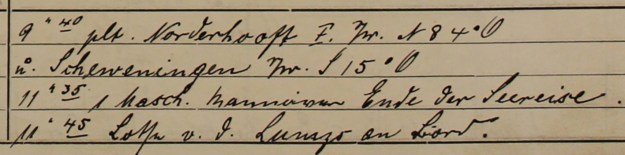 9 " 40 plt. Norderhooft F. Pr. N 84° O
u. Scheweningen Pr. S 15° O
11 " 35 1 Masch. mannöver Ende der Seereise.
11 " 45 Lotse v. d. an Bord.